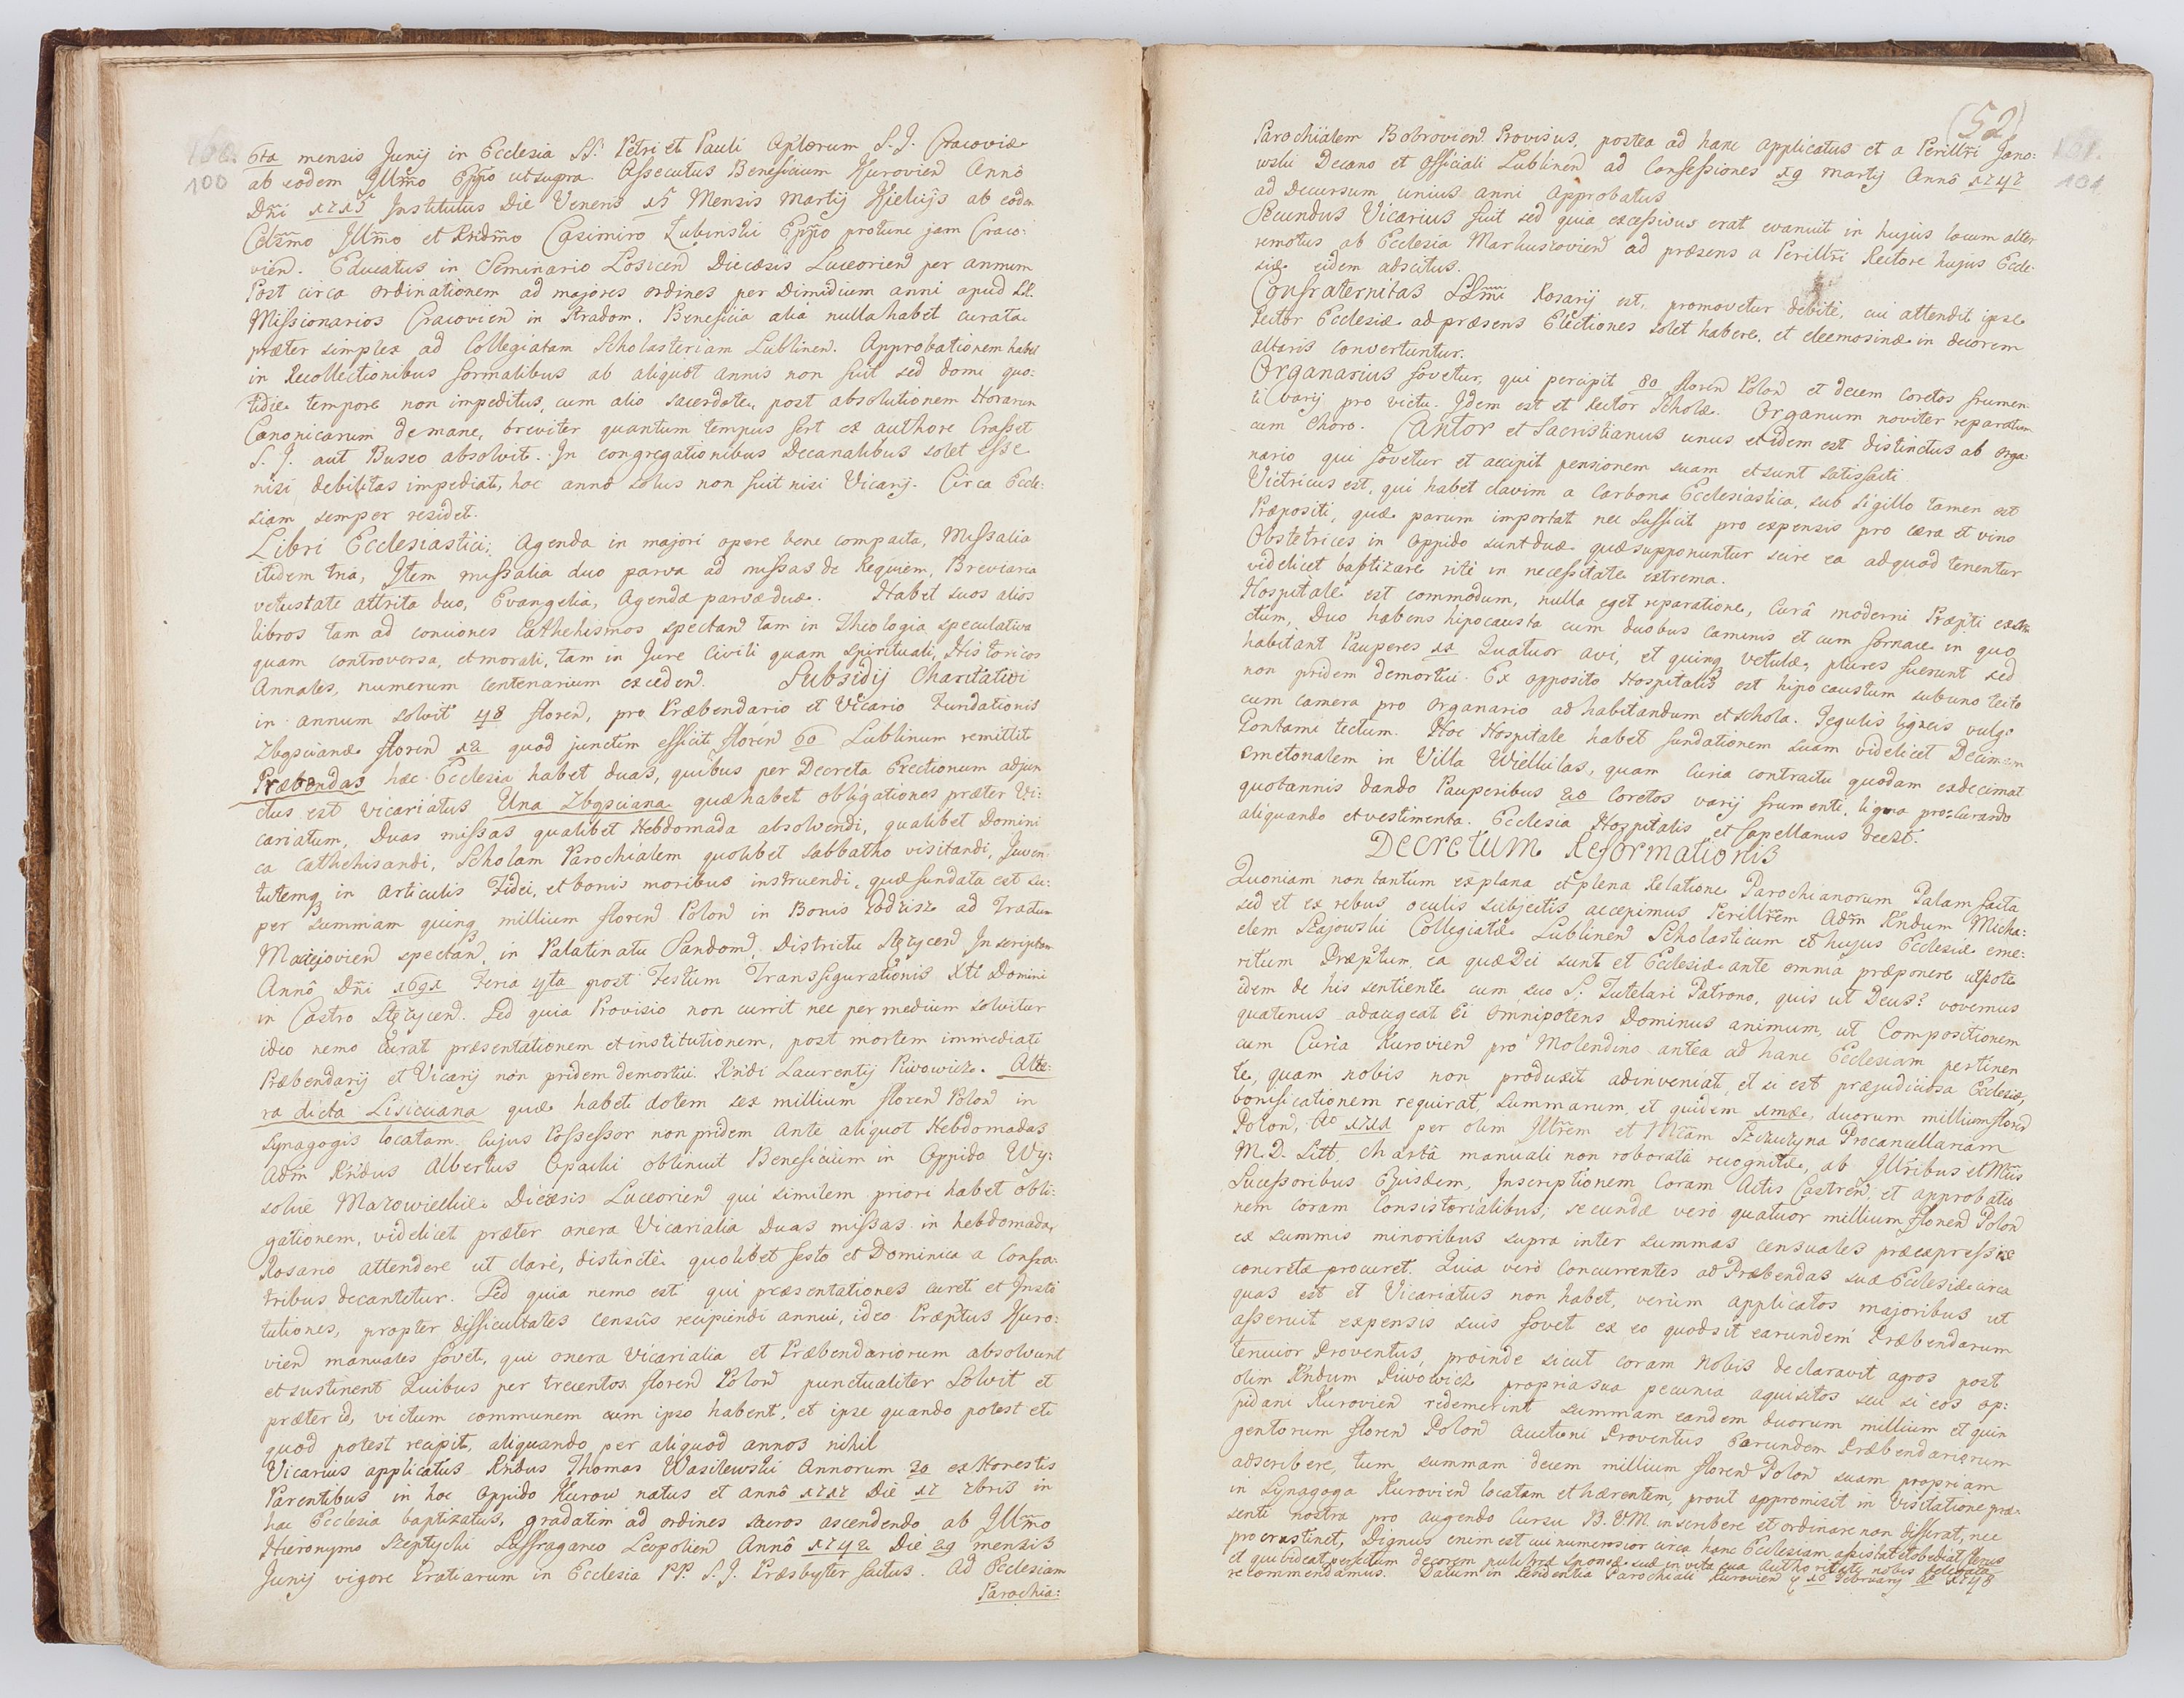 100
6ta mensis Junij in Ecclesia SS. Petri et Pauli Aptorum S. J. Cracoviæ
ab eodem Illmo Eppo ut supra. Assecutus Beneficium Kurovien Annô
Dni 1715 Institutus Die Veneris 15 Mensis Martij Kielcijs ab eodem
Celsmo Illmo et Rndmo Casimiro Łubinski Eppo protunc jam Craco:
vien. Educatus in Seminario Losicen Diecæsis Luceorien per annum
Post circa ordinationem ad majores ordines per Dimidium anni apud SS.
Missionarios Cracovien in Stradom. Beneficia alia nulla habet curata
præter simplex ad Collegiatam Scholasteriam Lublinen. Approbationem habet
in Recollectionibus formalibus ab aliquot annis non fuit sed domi quo:
tidie tempore non impeditus, cum alio sacerdote, post absolutionem Horarum
Canonicarum de mane, breviter quantum tempus fert ex authore Crasset
S. J. aut Buseo absolvit. In congregationibus Decanalibus solet esse
nisi debilitas impediat, hoc annô solus non fuit nisi Vicarij. Circa Eccle:
siam semper residet.
Libri Ecclesiastici: Agenda in majori opere bene compacta, Missalia
itidem tria, Item missalia duo parva ad missas de Requiem, Breviaria
vetustate attrita duo, Evangelia, Agendæ parvæ duæ. Habet suos alios
libros tam ad conciones Cathehismos spectan tam in Theologia speculativa
quam controversa, et morali, tam in Jure Civili quam spirituali, Historicos
Annales, numerum centenarium exceden. Subsidij Charitativi
in annum solvit 48 floren, pro Præbendario et Vicario Fundationis
Zbąscianæ floren 12 quod junctim efficit floren 60 Lublinum remittit
Præbendas hæc Ecclesia habet duas, quibus per Decreta Erectionum adjun
ctus est vicariatus Una Zbąsciana quæ habet obligationes præter Vi:
cariatum, Duas missas qualibet Hebdomada absolvendi, qualibet Domini
ca cathehisandi, Scholam Parochialem quolibet sabbatho visitandi, Juven
tutemq in Articulis Fidei, et bonis moribus instruendi, quæ fundata est su:
per summam quinq millium floren Polon in Bonis Podzisz ad Tradum
Maciejovien spectan, in Palatinatu Sandom, Districtu Stęzycen Inscriptam
Annô Dni 1691 Feria 4ta post Festum Transfigurationis Xti Domini
in Castro Stęzycen. Sed quia Provisio non currit nec per medium solvitur
ideo nemo curat præsentationem et institutionem, post mortem immediati
Præbendarij et Vicarij non pridem demortui Rndi Laurentij Piwowicz. Alte:
ra dicta Lisiciana quæ habet dotem sex millium floren Polon in
synagogis locatam. Cujus Possessor non pridem Ante aliquot Hebdomadas
Adm Rndus Albertus Opacki obtinuit Beneficium in Oppido Wy:
sokie Mazowieckie Diœcesis Luceorien qui similem priori habet obli:
gationem, videlicet præter onera Vicarialia Duas missas in hebdomada,
Rosario attendere ut clarè, distinctè quolibet festo et Dominica a Confra:
tribus decantetur. Sed quia nemo est qui præsentationes curet et Insti
tutiones, propter difficultates censûs recipiendi annui, ideo Præptus Kuro:
vien manuales fovet, qui onera vicarialia et Præbendariorum absolvunt
et sustinent Quibus per trecentos floren Polon punctualiter Solvit et
præter id, victum communem cum ipso habent, et ipse quando potest et
quod potest recipit, aliquando per aliquod annos nihil
Vicarius applicatus Rndus Thomas Wasilewski Annorum 30 ex Honestis
Parentibus in hoc Oppido Kurow natus et annô 1717 Die 17 Xbris in
hac Ecclesia baptizatus, gradatim ad ordines sacros ascendendo ab Illmo
Hieronymo Szeptycki Suffraganeo Leopolien Annô 1742 Die 29 mensis
Junij vigore Gratiarum in Ecclesia PP. S. J. Præsbyter factus. Ad Ecclesiam
Parochia:
(52)
101
Parochialem Bobrovien Provisus, postea ad hanc applicatus et a Perillri Jano:
wski Decano et Officiali Lublinen ad Confessiones 19 Martij Annô 1747
ad Decursum unius anni Approbatus
Secundus Vicarius fuit sed quia excessivus erat evanuit in hujus locum alter
remotus ab Ecclesia Markuszovien ad præsens a Perillri Rectore hujus Eccle:
siæ eidem adscitus.
Confraternitas SSmi Rosarij est, promovetur debite, cui attendit ipse
Rector Ecclesiæ ad præsens Electiones solet habere, et eleemosinæ in decorem
altaris convertuntur.
Organarius fovetur, qui percipit 80 floren Polon et decem coretos frumen
ti varij pro victu. Idem est et Rector Scholæ. Organum noviter reparatum
cum Choro. Cantor et Sacristianus unus et idem est distinctus ab Orga:
nario qui fovetur et accipit pensionem suam et sunt satisfacti
Victricus est, qui habet clavim a Carbona Ecclesiastica, sub sigillo tamen est
Præpositi, quæ parum importat nec sufficit pro expensis pro cæra et vino
Obstetrices in Oppido sunt duæ quæ supponuntur scire ea ad quod tenentur
videlicet baptizare ritè in necessitate extrema.
Hospitale est commodum, nulla eget reparatione, Curâ moderni Præpti exstru
ctum, Duo habens hipocausta cum duobus caminis et cum fornace in quo
habitant Pauperes 12 Quatuor avi, et quinq vetulæ, plures fuerunt sed
non pridem demortui. Ex opposito Hospitalis est hipocaustum sub uno tecto
cum camera pro organario ad habitandum et schola. Tegulis ligneis vulgo
Gontami tectum. Hoc Hospitale habet fundationem suam videlicet Decimam
Cmetonalem in Villa Wielkolas, quam Curia contractu quodam exdecimat
quotannis dando Pauperibus 20 Coretos varij frumenti, ligna procurando
aliquando et vestimenta. Ecclesia Hospitalis et Capellanus deest.
Decretum Reformationis
Quoniam non tantum ex plana et plena Relatione Parochianorum Palam facta
sed et ex rebus oculis subjectis accepimus Perillrem Adm Rndum Micha:
elem Szajowski Collegiatæ Lublinen Scholasticum et hujus Ecclesiæ eme:
ritum Præptum, ea quæ Dei sunt et Ecclesiæ ante omnia præponere utpote
idem de his sentiente cum suo S. Tutelari Patrono, quis ut Deus? vovemus
quatenus adaugeat Ei Omnipotens Dominus animum, ut Compositionem
cum Curia Kurovien pro Molendino antea ad hanc Ecclesiam pertinen
te, quam nobis non produxit adinveniat, et si est præjudiciosa Ecclesiæ,
bonificationem requirat, summarum, et quidem 1mæ, duorum millium floren
Polon, Ao 1711 per olim Illrem et Mcam Szczuczyna Procancellariam
M. D. Litt. chartâ manuali non roboratâ recognitæ, ab Illribus et Mcis
Sucessoribus Ejusdem, Inscriptionem Coram Actis Castren, et approbatio
nem coram Consistorialibus; secundæ verò quatuor millium floren Polon
ex summis minoribus supra inter summas censuales præexpressis
concretæ procuret. Quia verò Concurrentes ad Præbendas suæ Ecclesiæ circa
quas est et Vicariatus non habet, verùm applicatos majoribus ut
asseruit expensis suis fovet ex eo quod sit earundem Præbendarum
tenuior Proventus, proinde sicut coram Nobis declaravit agros post
olim Rndum Piwowicz propria sua pecunia aquisitos seu si eos op:
pidani Kurovien redemerint summam eandem duorum millium et quin
gentorum floren Polon Auctioni Proventus Earundem Præbendariorum
adscribere, tum, summam decem millium floren Polon suam propriam
in Synagoga Kurovien locatam et hærentem, prout appromisit in Visitatione præ:
senti nostra pro augendo Cursu B. V. M. inscribere et ordinare non differat, nec
procrastinet, Dignus enim est cui numerosior circa hanc Ecclesiam assistat et obediat Clerus
et qui videat perfectum decorem pulchræ Sponsæ suæ in vita sua Authoritate nobis delegata
recommendamus. Datum in Residentia Parochiali Kurovien 15 February Ao 1748